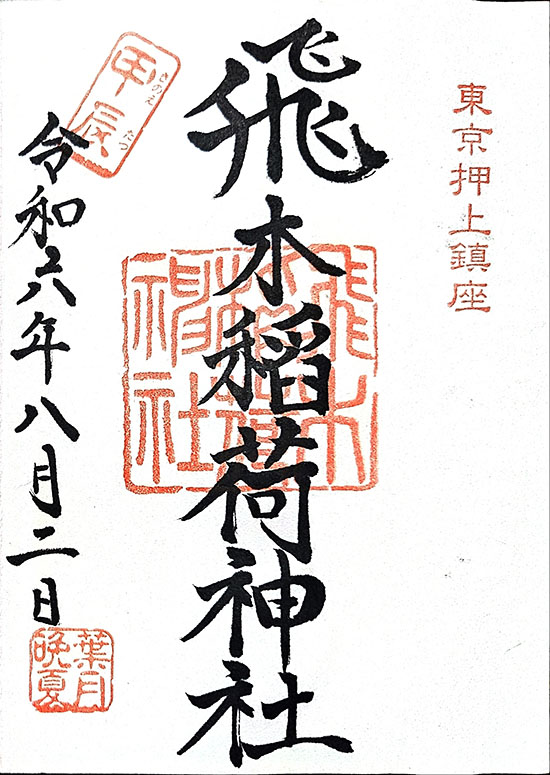 東京押上鎮座
飛木稲荷神社
飛木稲荷神社
甲辰
きのえ たつ
令和六年八月二日
葉月
晩夏